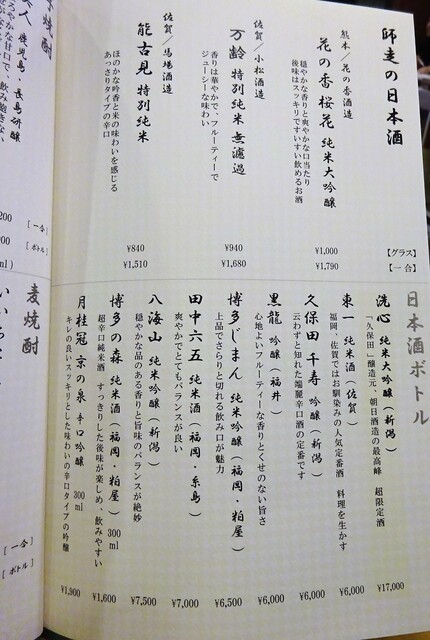 師走の日本酒
【グラス】
【一合】
熊本／花の香酒造
花の香 桜花 純米大吟醸
穏やかな香りと爽やかな口当たり
後味はスッキリですいすい飲めるお酒
¥1,000
¥1,790
佐賀／小松酒造
万齢 特別純米 無濾過
香りは華やかで、フルーティーで
ジューシーな味わい
¥940
¥1,680
佐賀／馬場酒造
能古見 特別純米
ほのかな吟香と米の味わいを感じる
あっさりタイプの辛口
¥840
¥1,510
日本酒ボトル
洗心 純米大吟醸（新潟）
「久保田」醸造元、朝日酒造の最高峰 超限定酒
¥17,000
東一 純米酒（佐賀）
福岡、佐賀ではお馴染みの人気定番酒 料理を生かす
¥6,000
久保田 千寿 吟醸（新潟）
云わずと知れた端麗辛口酒の定番です
¥6,000
黒龍 吟醸（福井）
心地よいフルーティーな香りとくせのない旨さ
¥6,000
博多じまん 純米吟醸（福岡・粕屋）
上品でさらりと切れる飲み口が魅力
¥6,500
田中六五 純米酒（福岡・糸島）
爽やかでとてもバランスが良い
¥7,000
八海山 純米吟醸（新潟）
穏やかな品のある香りと旨味のバランスが絶妙
¥7,500
博多の森 純米酒（福岡・粕屋） 300ml
超辛口純米酒 すっきりした後味が楽しめ、飲みやすい
¥1,600
月桂冠 京の泉 辛口吟醸 300ml
キレの良いスッキリとした味わいの辛口タイプの吟醸
¥1,900
焼酎
鹿児島・長島研醸
やかな甘口で、飲み飽きない
［一合］
［ボトル］
麦焼酎
［一合］
［ボトル］